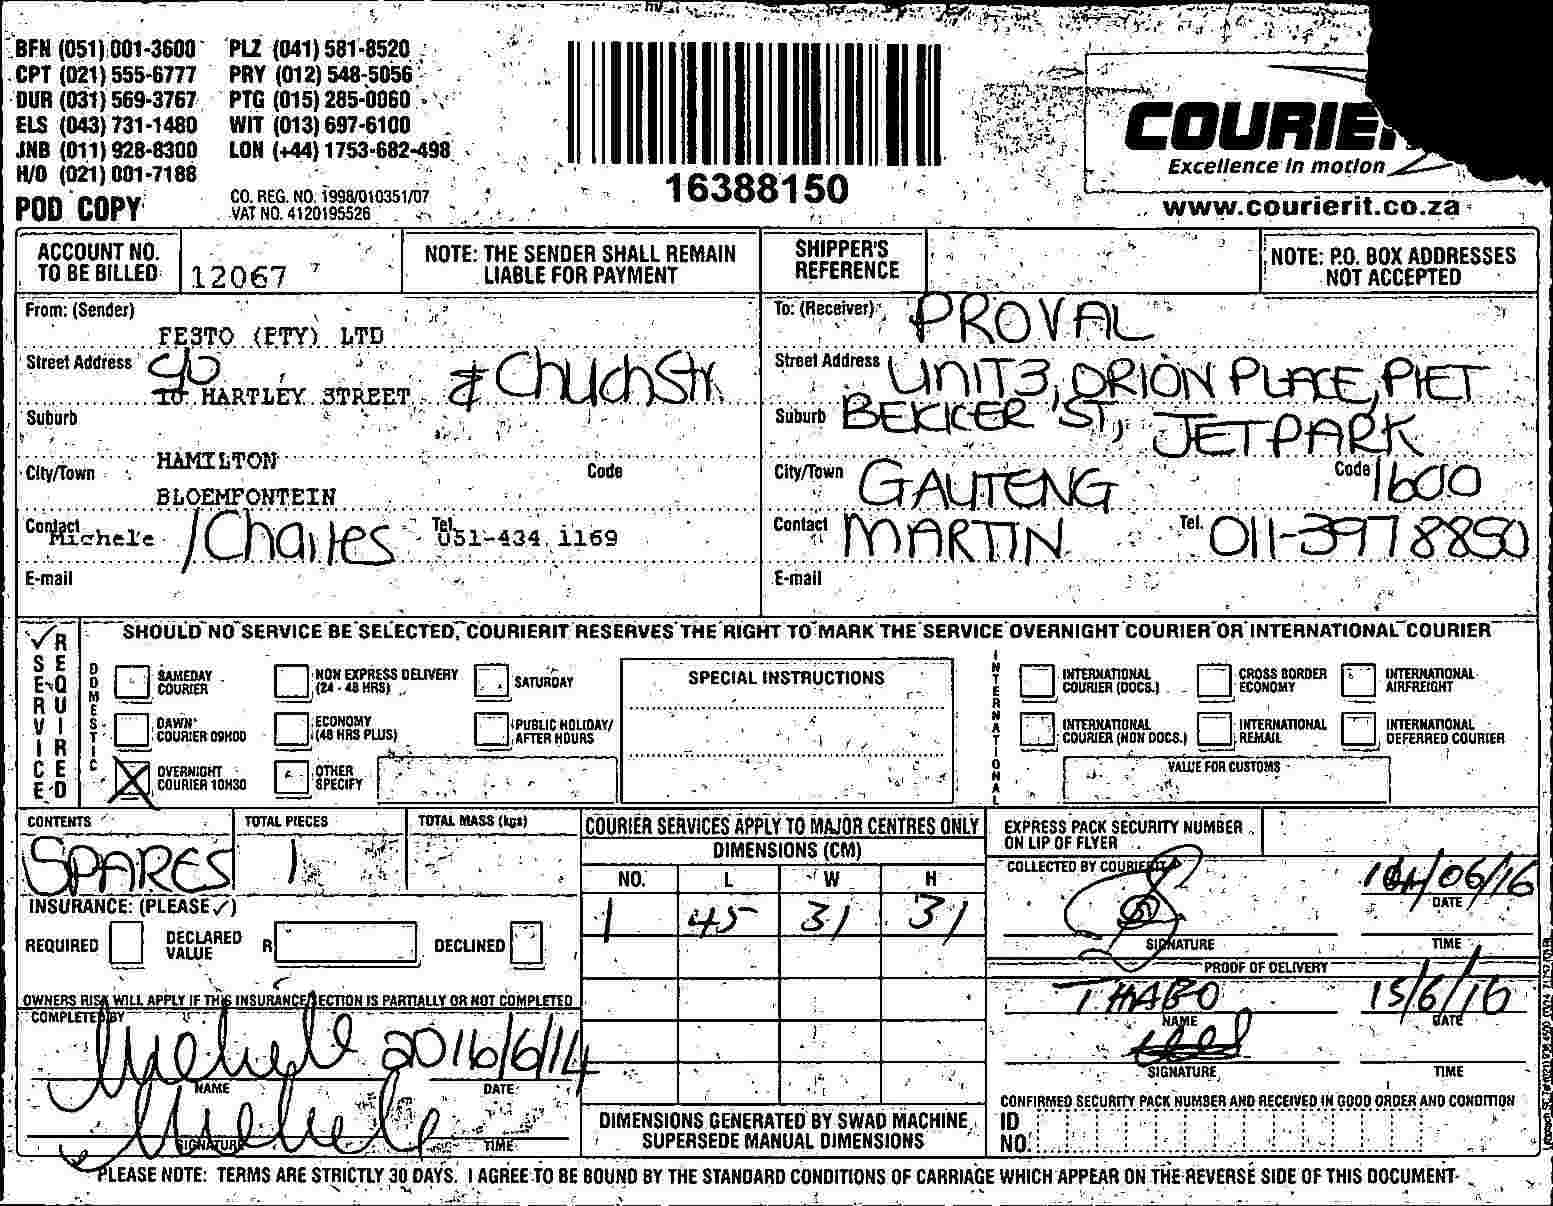 BFN (051) 001-3600 PLZ (041) 581-8520
CPT (021) 555-6777 PRY (012) 548-5056
DUR (031) 569-3767 PTG (015) 285-0060
ELS (043) 731-1480 WIT (013) 697-6100
JNB (011) 928-8300 LON (+44) 1753-682-498
H/O (021) 001-7188
POD COPY
CO. REG. NO. 1998/010351/07
VAT NO. 4120195526
16388150
COURIE
Excellence in motion
www.courierit.co.za
ACCOUNT NO. TO BE BILLED 12067
NOTE: THE SENDER SHALL REMAIN LIABLE FOR PAYMENT
SHIPPER'S REFERENCE
NOTE: P.O. BOX ADDRESSES NOT ACCEPTED
From: (Sender)
FESTO (PTY) LTD
Street Address c/o
10 HARTLEY STREET & Chuch Str
Suburb
HAMILTON
City/Town Code
BLOEMFONTEIN
Contact Michele / Charles Tel. 051-434 1169
E-mail
To: (Receiver) PROVAL
Street Address UNIT 3, ORION PLACE, PIET
Suburb BEKKER ST, JETPARK
City/Town GAUTENG Code 1600
Contact MARTIN Tel. 011-397 8850
E-mail
✓ SERVICE REQUIRED
SHOULD NO SERVICE BE SELECTED, COURIERIT RESERVES THE RIGHT TO MARK THE SERVICE OVERNIGHT COURIER OR INTERNATIONAL COURIER
DOMESTIC
SAMEDAY COURIER
NON EXPRESS DELIVERY (24 - 48 HRS)
SATURDAY
DAWN COURIER 09H00
ECONOMY (48 HRS PLUS)
PUBLIC HOLIDAY/ AFTER HOURS
OVERNIGHT COURIER 10H30
OTHER SPECIFY
SPECIAL INSTRUCTIONS
INTERNATIONAL
INTERNATIONAL COURIER (DOCS.)
CROSS BORDER ECONOMY
INTERNATIONAL AIRFREIGHT
INTERNATIONAL COURIER (NON DOCS.)
INTERNATIONAL REMAIL
INTERNATIONAL DEFERRED COURIER
VALUE FOR CUSTOMS
CONTENTS SPARES
TOTAL PIECES 1
TOTAL MASS (kgs)
INSURANCE: (PLEASE ✓)
REQUIRED DECLARED VALUE R DECLINED
OWNERS RISK WILL APPLY IF THIS INSURANCE SECTION IS PARTIALLY OR NOT COMPLETED
COMPLETED BY
Michele 2016/6/14
NAME DATE
Michele
SIGNATURE TIME
COURIER SERVICES APPLY TO MAJOR CENTRES ONLY
DIMENSIONS (CM)
NO. L W H
1 45 31 31
DIMENSIONS GENERATED BY SWAD MACHINE SUPERSEDE MANUAL DIMENSIONS
EXPRESS PACK SECURITY NUMBER ON LIP OF FLYER
COLLECTED BY COURIERIT
14/06/16
DATE
SIGNATURE TIME
PROOF OF DELIVERY
THABO 15/6/16
NAME DATE
SIGNATURE TIME
CONFIRMED SECURITY PACK NUMBER AND RECEIVED IN GOOD ORDER AND CONDITION
ID NO.
PLEASE NOTE: TERMS ARE STRICTLY 30 DAYS. I AGREE TO BE BOUND BY THE STANDARD CONDITIONS OF CARRIAGE WHICH APPEAR ON THE REVERSE SIDE OF THIS DOCUMENT